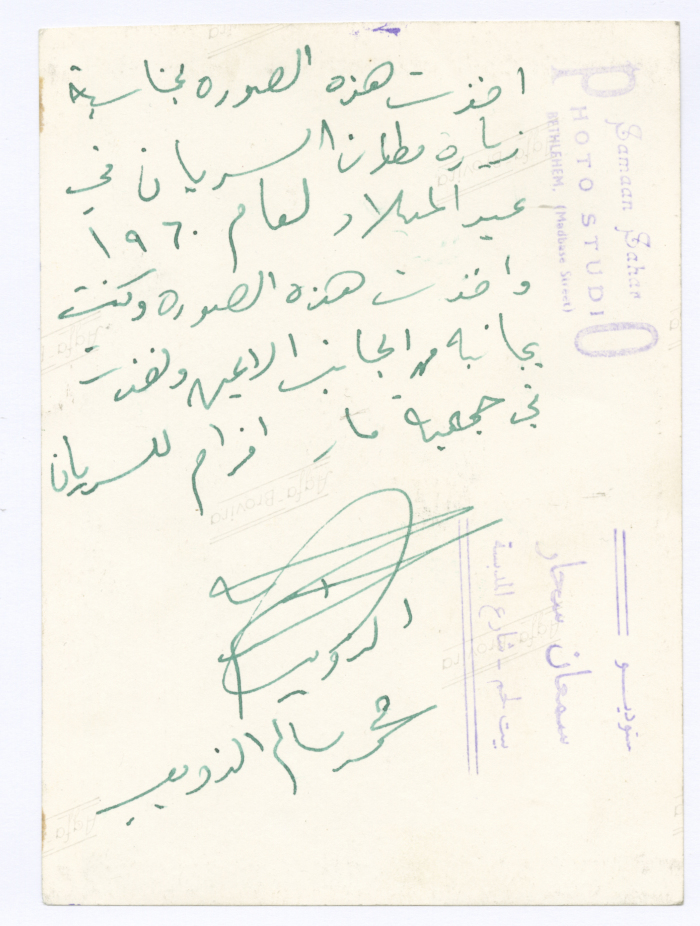 اخذت هذه الصوره بمناسبة
زياره مطران السريان في
عيد الميلاد لعام ١٩٦٠
واخذت هذه الصوره وكنت
بجانبه من الجانب الايمن واخذت
في جمعية مار افرام للسريان
الذويب
محمد سالم الذويب
Samaan Sahar
PHOTO STUDIO
BETHLEHEM, (Madbase Street)
ستوديو
سمعان سحار
بيت لحم - شارع المدبسة
Agfa-Brovira